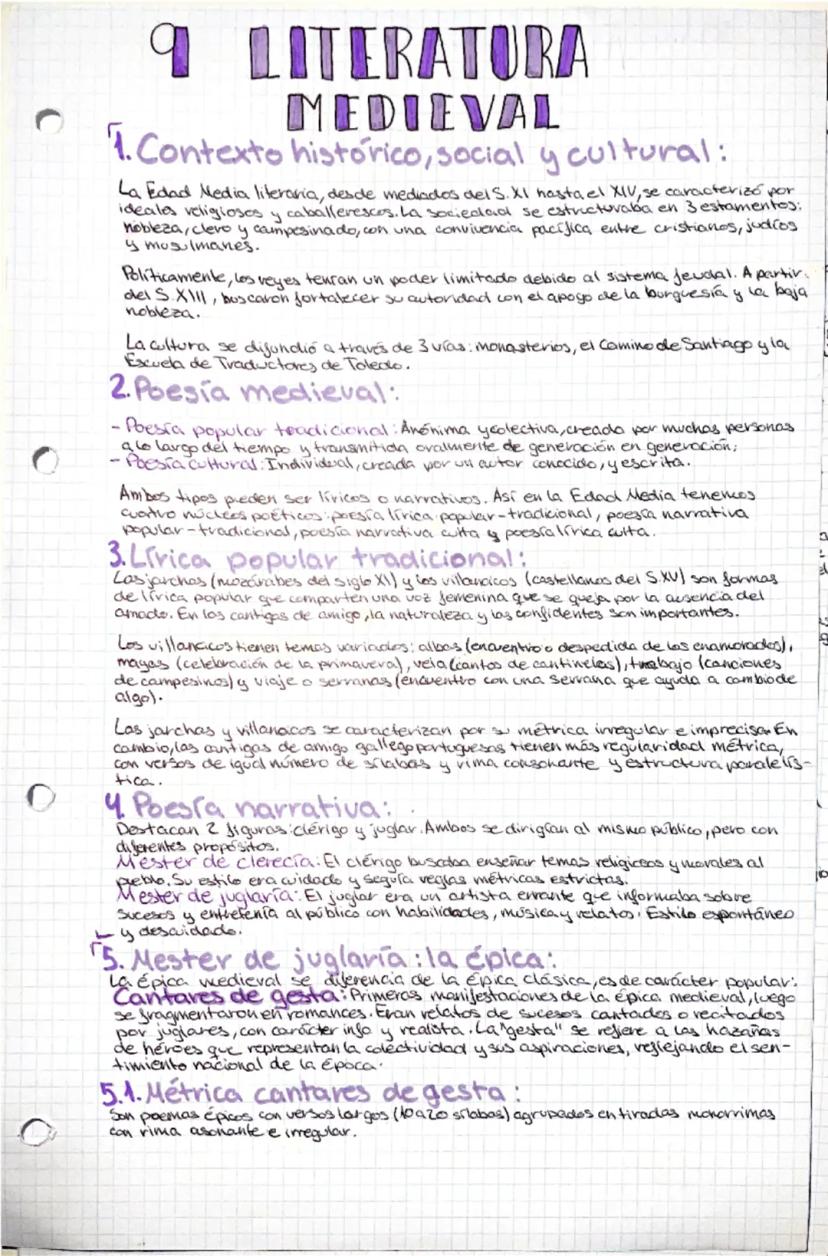 9 LITERATURA
MEDIEVAL
1. Contexto histórico, social y cultural:
La Edad Media literaria, desde mediados del S. XI hasta el XIV, se caracterizó por
ideales religiosos y caballerescos. La sociedad se estructuraba en 3 estamentos:
nobleza, clero y campesinado, con una convivencia pacífica entre cristianos, judíos
y musulmanes.
Políticamente, los reyes tenían un poder limitado debido al sistema feudal. A partir
del S. XIII, buscaron fortalecer su autoridad con el apoyo de la burguesía y la baja
nobleza.
La cultura se difundió a través de 3 vías: monasterios, el Camino de Santiago y la
Escuela de Traductores de Toledo.
2. Poesía medieval:
- Poesía popular tradicional: Anónima y colectiva, creada por muchas personas
a lo largo del tiempo y transmitida oralmente de generación en generación;
- Poesía cultural: Individual, creada por un autor conocido, y escrita.
Ambos tipos pueden ser líricos o narrativos. Así en la Edad Media tenemos
cuatro núcleos poéticos: poesía lírica popular-tradicional, poesía narrativa
popular-tradicional, poesía narrativa culta y poesía lírica culta.
3. Lírica popular tradicional:
Las jarchas (mozárabes del siglo XI) y los villancicos (castellanos del S. XV) son formas
de lírica popular que comparten una voz femenina que se queja por la ausencia del
amado. En las cantigas de amigo, la naturaleza y las confidentes son importantes.
Los villancicos tienen temas variados: albas (encuentro o despedida de los enamorados),
mayas (celebración de la primavera), vela (cantos de centinelas), trabajo (canciones
de campesinos) y viaje o serranas (encuentro con una serrana que ayuda a cambio de
algo).
Las jarchas y villancicos se caracterizan por su métrica irregular e imprecisa. En
cambio, las cantigas de amigo gallegoportuguesas tienen más regularidad métrica,
con versos de igual número de sílabas y rima consonante y estructura paralelís-
tica.
4. Poesía narrativa:
Destacan 2 figuras: clérigo y juglar. Ambos se dirigían al mismo público, pero con
diferentes propósitos.
Mester de clerecía: El clérigo buscaba enseñar temas religiosos y morales al
pueblo. Su estilo era cuidado y seguía reglas métricas estrictas.
Mester de juglaría: El juglar era un artista errante que informaba sobre
sucesos y entretenía al público con habilidades, música y relatos. Estilo espontáneo
y descuidado.
5. Mester de juglaría: la épica:
La épica medieval se diferencia de la épica clásica, es de carácter popular:
Cantares de gesta: Primeras manifestaciones de la épica medieval, luego
se fragmentaron en romances. Eran relatos de sucesos cantados o recitados
por juglares, con carácter info y realista. La "gesta" se refiere a las hazañas
de héroes que representan la colectividad y sus aspiraciones, reflejando el sen-
timiento nacional de la época.
5.1. Métrica cantares de gesta:
Son poemas épicos con versos largos (10 a 20 sílabas) agrupados en tiradas monorrimas
con rima asonante e irregular.